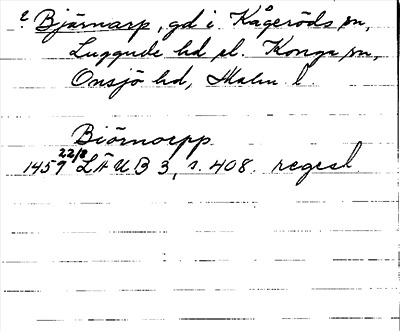 ? Bjärnarp, gd i Kågeröds sn,
Luggude hd el. Konga sn,
Onsjö hd, Malm l
Biörnorpp
1459 22/8 LÄUB 3, s. 408. regest